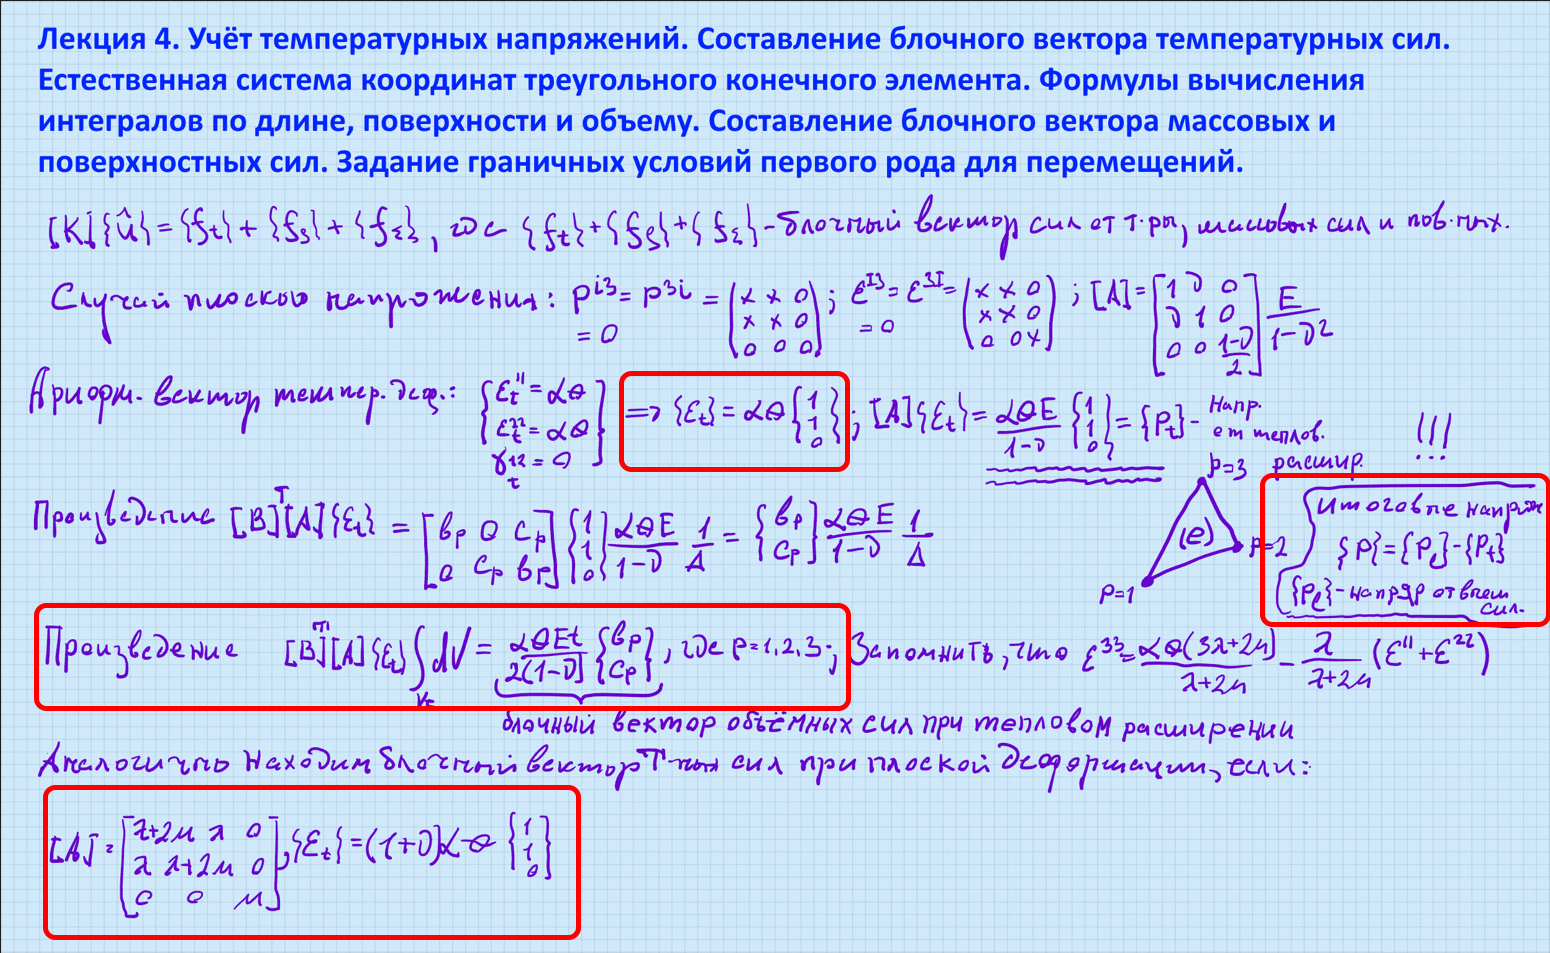 Лекция 4. Учёт температурных напряжений. Составление блочного вектора температурных сил.
Естественная система координат треугольного конечного элемента. Формулы вычисления
интегралов по длине, поверхности и объему. Составление блочного вектора массовых и
поверхностных сил. Задание граничных условий первого рода для перемещений.
[K]{û} = {f_t} + {f_g} + {f_Σ}, где {f_t} + {f_g} + {f_Σ} - блочный вектор сил от т-ры, массовых сил и пов-ных.
Случай плоского напряжения: p^{i3} = p^{3i} = 0 = (x x 0; x x 0; 0 0 0); ε^{I3} = ε^{3I} = 0 = (x x 0; x x 0; 0 0 x); [A] = [1 ν 0; ν 1 0; 0 0 (1-ν)/2] E/(1-ν²)
Априорн. вектор темпер. деф.: {ε_t^{11} = αθ; ε_t^{22} = αθ; γ_t^{12} = 0} => {ε_t} = αθ{1 1 0}; [A]{ε_t} = αθE/(1-ν) {1 1 0} = {P_t} - Напр. от теплов. расшир.
!!!
Произведение [B]^T[A]{ε_t} = [b_p 0 c_p; 0 c_p b_p]{1 1 0} αθE/(1-ν) 1/Δ = {b_p c_p} αθE/(1-ν) 1/Δ
p=3
(e)
p=2
p=1
Итоговые напряж
{P} = {P_e} - {P_t}
{P_e} - напряж от внеш сил.
Произведение [B]^T[A]{ε_t} ∫_{V_e} dV = αθEt/(2(1-ν)) {b_p c_p}, где p = 1, 2, 3; Запомнить, что ε^{33} = αθ(3λ+2μ)/(λ+2μ) - λ/(λ+2μ) (ε^{11} + ε^{22})
блочный вектор объёмных сил при тепловом расширении
Аналогично находим блочный вектор Т-ных сил при плоской деформации, если:
[A] = [λ+2μ λ 0; λ λ+2μ 0; 0 0 μ], {ε_t} = (1+ν)αθ {1 1 0}